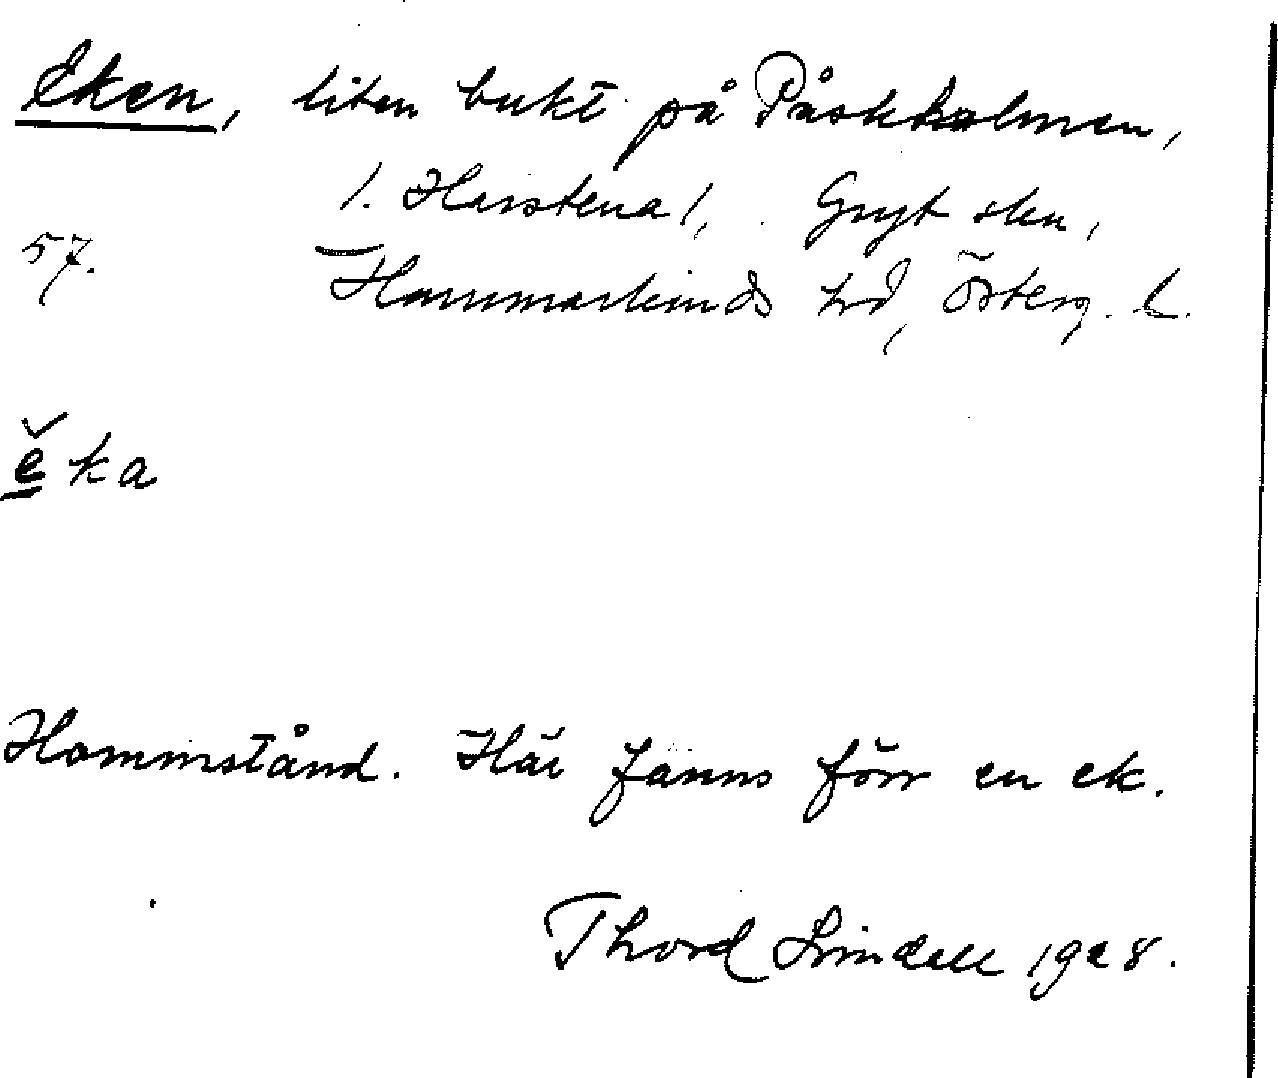 Eken, liten bukt på Påskholmen,
/. Harstena /, Gryt skn,
57. Hammarkinds hd, Österg. l.
ĕka
Hommstånd. Här fanns förr en ek.
Thord Lindell 1928.